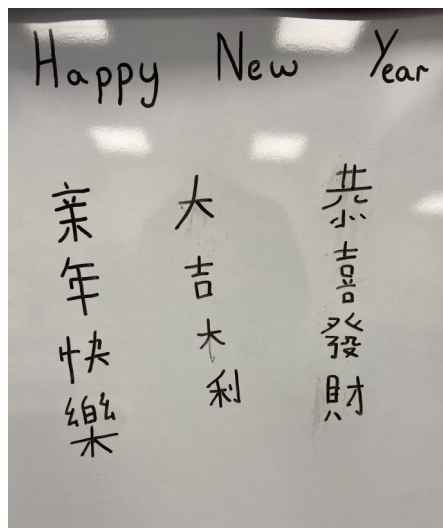 Happy New Year
亲年快樂
大吉木利
恭喜發財